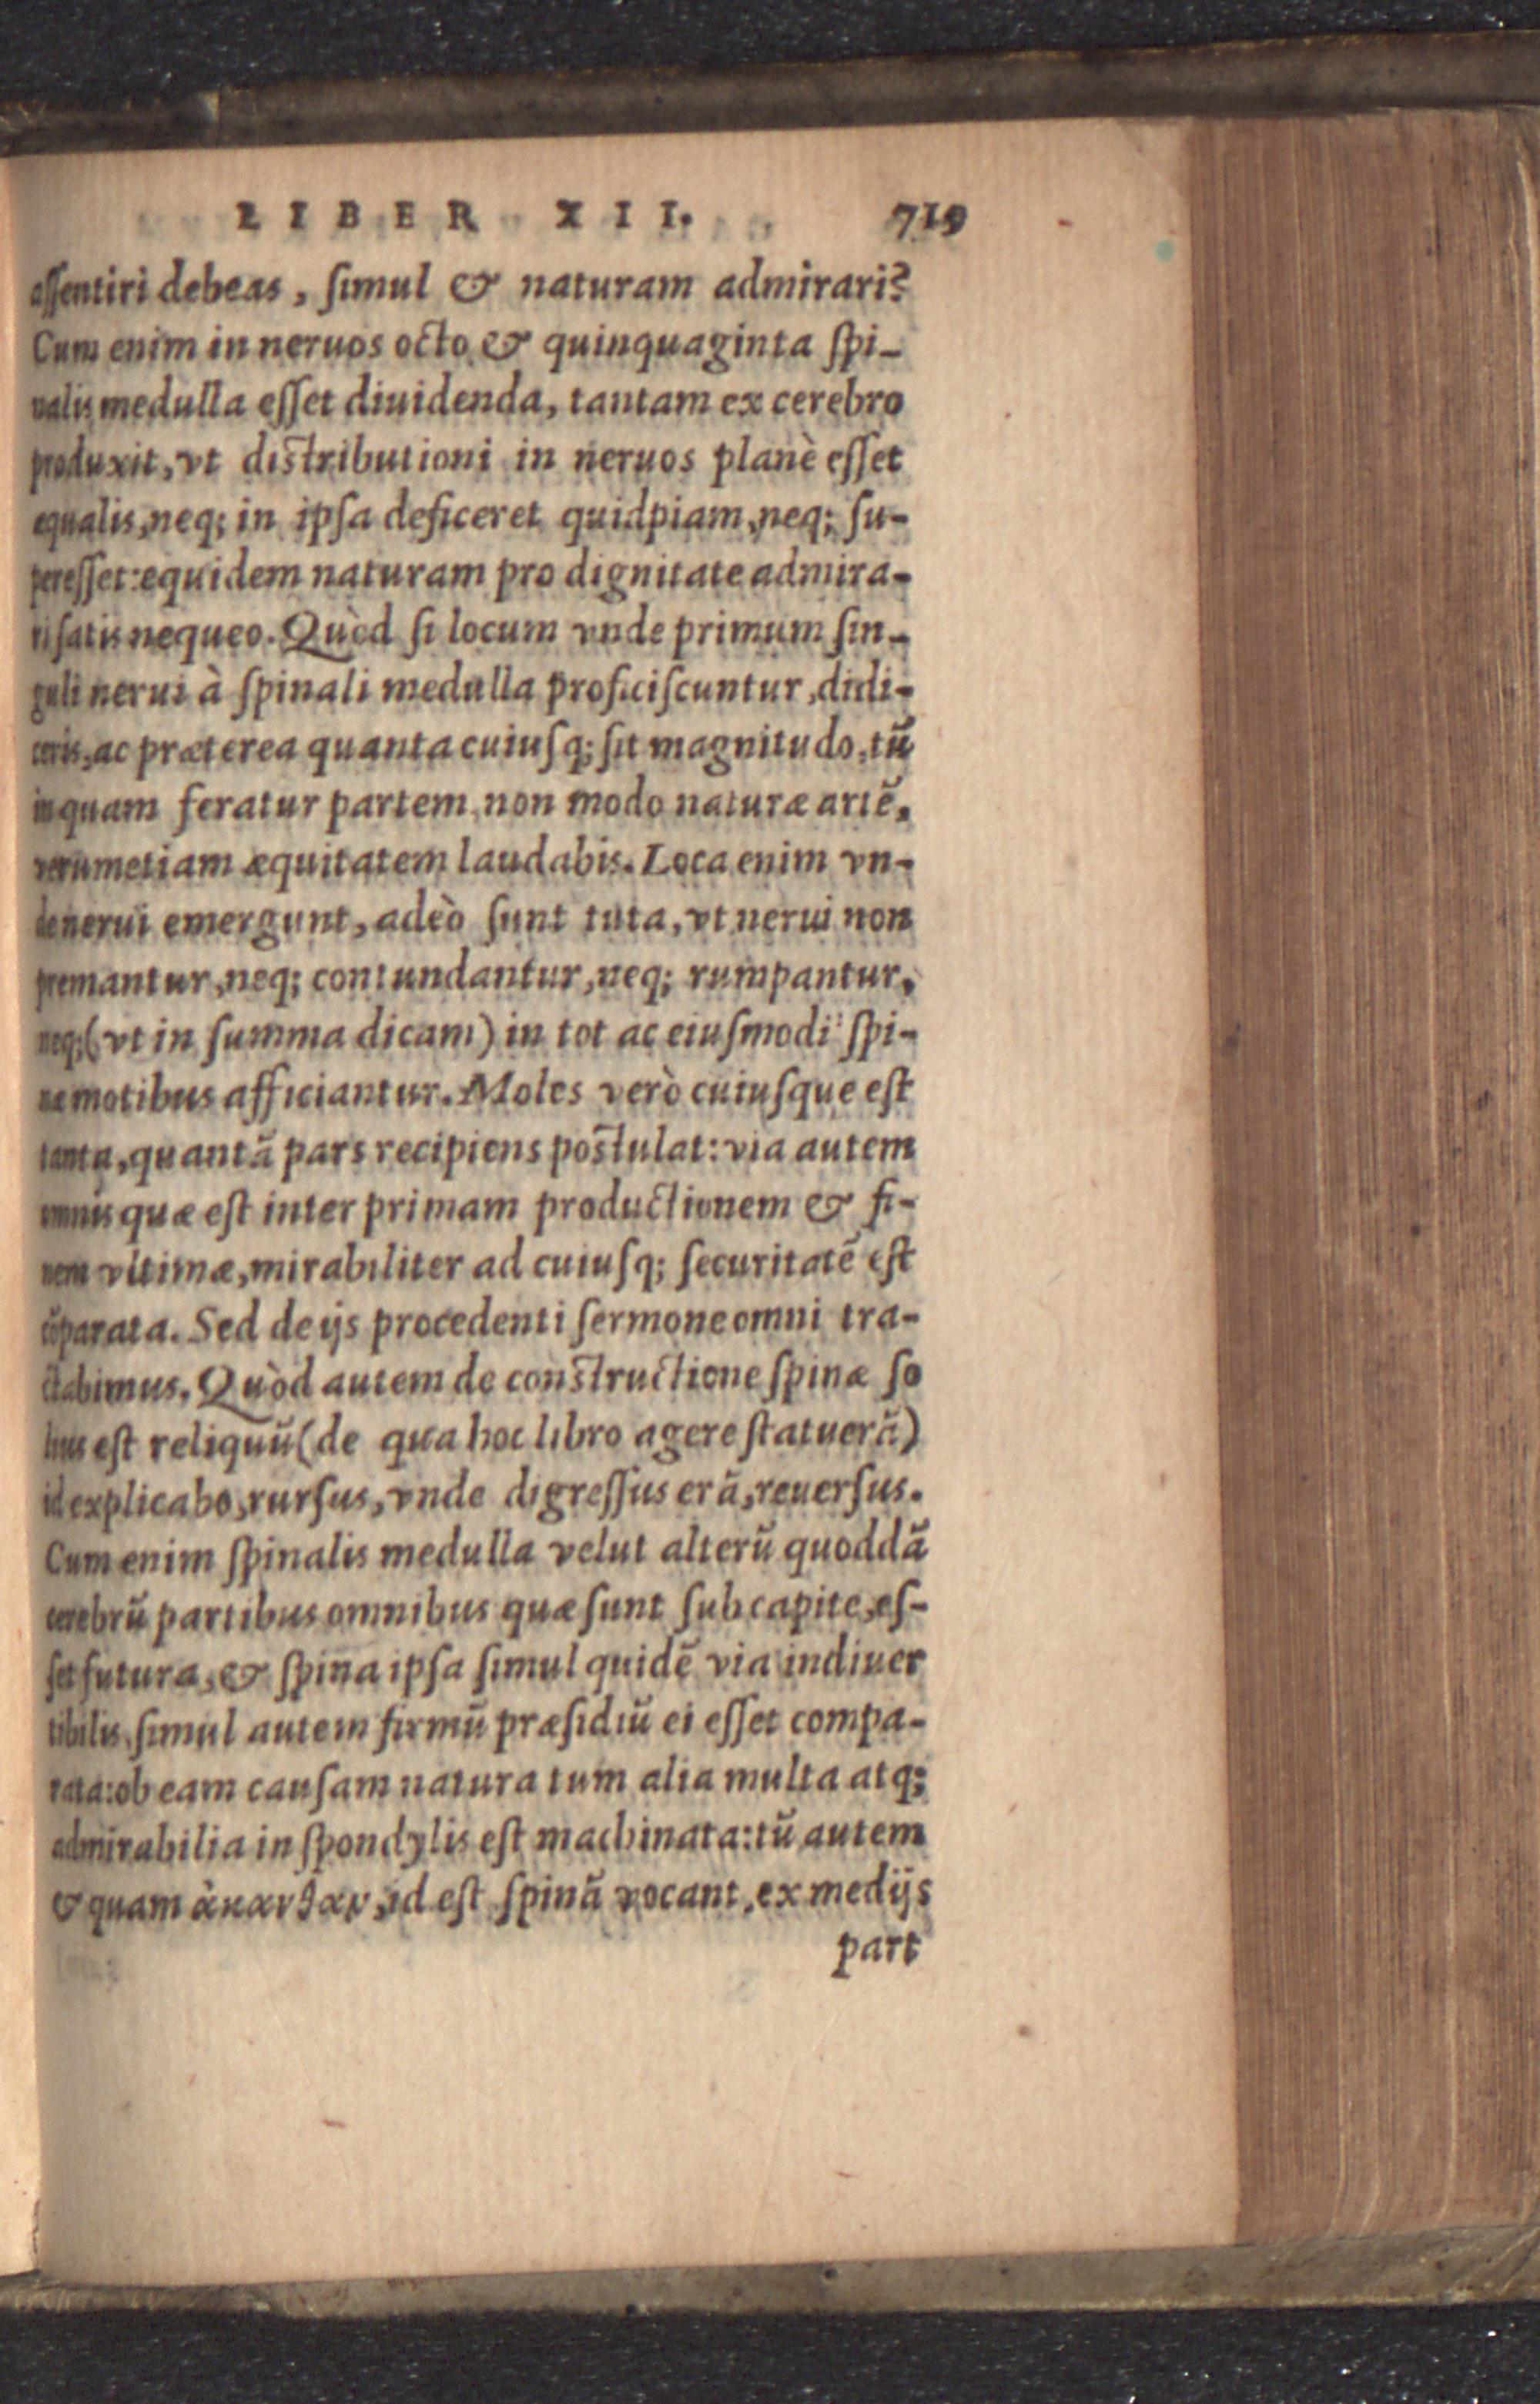 LIBER XII. 719
aſſentiri debeas, ſimul & naturam admirari?
Cum enim in neruos octo & quinquaginta ſpi-
nalis medulla eſſet diuidenda, tantam ex cerebro
produxit, vt distributioni in neruos planè eſſet
equalis, neq; in ipſa deficeret quidpiam, neq; ſu-
pereſſet: equidem naturam pro dignitate admira-
ri ſatis nequeo. Quòd ſi locum vnde primum ſin-
guli nerui à ſpinali medulla proficiſcuntur, didi-
ceris, ac præterea quanta cuiuſq; ſit magnitudo, tũ
in quam feratur partem, non modo naturæ artẽ,
verumetiam æquitatem laudabis. Loca enim vn-
de nerui emergunt, adeò ſunt tuta, vt nerui non
premantur, neq; contundantur, neq; rumpantur,
neq; (vt in ſumma dicam) in tot ac eiuſmodi ſpi-
næ motibus afficiantur. Moles verò cuiuſque eſt
tanta, quantã pars recipiens postulat: via autem
omnis quæ eſt inter primam productionem & fi-
nem vltimæ, mirabiliter ad cuiuſq; ſecuritatẽ eſt
cõparata. Sed de ijs procedenti ſermone omni tra-
ctabimus. Quòd autem de constructione ſpinæ ſo
lius eſt reliquũ (de qua hoc libro agere ſtatuerã)
id explicabo, rurſus, vnde digreſſus erã, reuerſus.
Cum enim ſpinalis medulla velut alterũ quoddã
cerebrũ partibus omnibus quæ ſunt ſub capite, eſ-
ſet futura, & ſpina ipſa ſimul quidẽ via indiuer
tibilis, ſimul autem firmũ præſidiũ ei eſſet compa-
rata: ob eam cauſam natura tum alia multa atq;
admirabilia in ſpondylis eſt machinata: tũ autem
& quam ἄκανθαν, id eſt ſpinã vocant, ex medijs
part